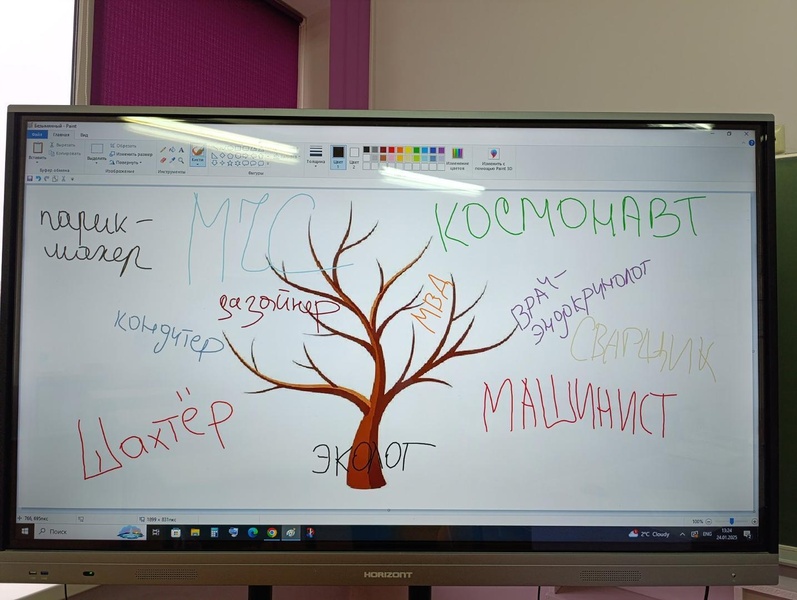 Безымянный - Paint
Файл Главная Вид
Вставить
Вырезать
Копировать
Буфер обмена
Выделить
Обрезать
Изменить размер
Повернуть
Изображение
Инструменты
Кисти
Фигуры
Толщина
Цвет 1
Цвет 2
Изменение цветов
Изменить с помощью Paint 3D
парик-
махер
МЧС
КОСМОНАВТ
дазойнер
МВД
ВРАЧ-
эндокринолог
кондитер
СВАРЩИК
Шахтёр
МАШИНИСТ
ЭКОЛОГ
100%
Поиск
2°C Cloudy
ENG
13:24
24.01.2025
HORIZONT